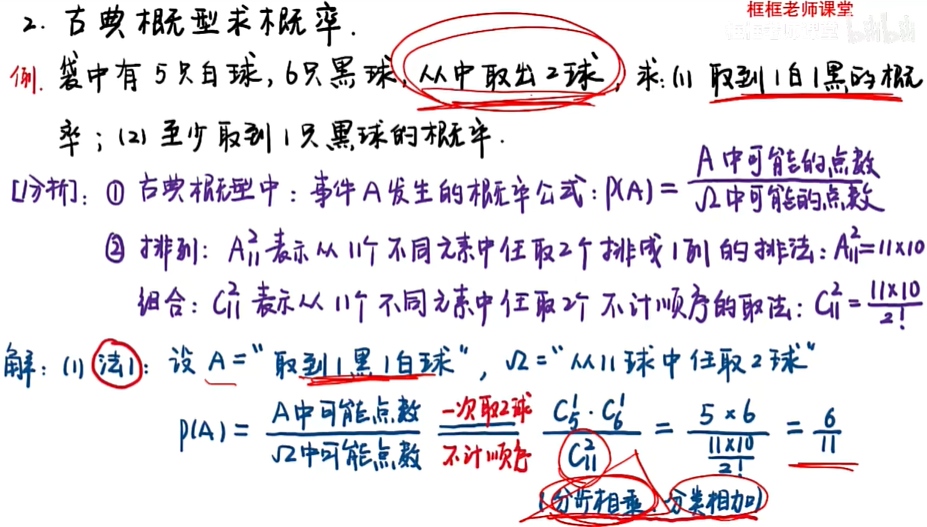 框框老师课堂
bilibili
2. 古典概型求概率.
例. 袋中有5只白球,6只黑球,从中取出2球,求:(1) 取到1白1黑的概
率;(2) 至少取到1只黑球的概率.
[分析]: ① 古典概型中:事件A发生的概率公式:P(A) = A中可能的点数 / Ω中可能的点数
② 排列: A₁₁² 表示从11个不同元素中任取2个排成1列的排法: A₁₁² = 11×10
组合: C₁₁² 表示从11个不同元素中任取2个不计顺序的取法: C₁₁² = 11×10 / 2!
解: (1) 法1: 设 A = “取到1黑1白球”, Ω = “从11球中任取2球”
P(A) = A中可能点数 / Ω中可能点数 = 一次取2球 不计顺序 C₅¹·C₆¹ / C₁₁² = 5×6 / (11×10 / 2!) = 6/11
(分步相乘.分类相加)